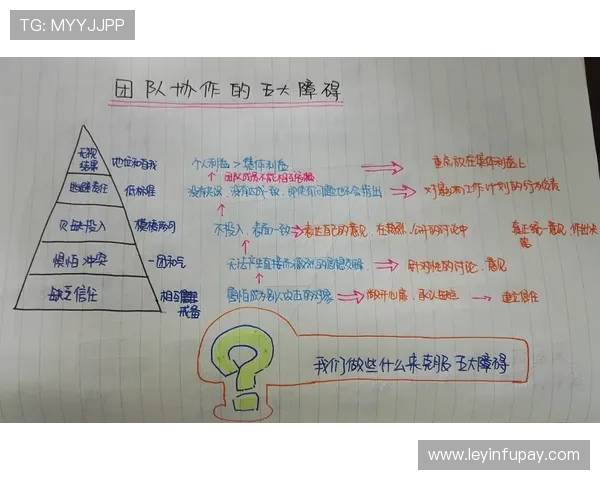 TG: MYYJJPP
团队协作的五大障碍
无视结果 地位和自我 个人利益>集体利益 重点放在集体利益上
团队成员不能相互
逃避责任 低标准 没有 没有 一致,即使有问题也不会指出 对影响工作计划的行为负责
欠缺投入 模棱两可 不投入,表面一致 表达自己的意见,在 公开的讨论中 真正统一意见,作出决策
惧怕冲突 一团和气 无法产生直接而激烈的思想交锋 针对性的讨论,意见
缺乏信任 相互 戒备 害怕成为别人攻击的对象 敞开心扉,承认 建立信任
? 我们做些什么来克服五大障碍
https://www.leyinfupay.com